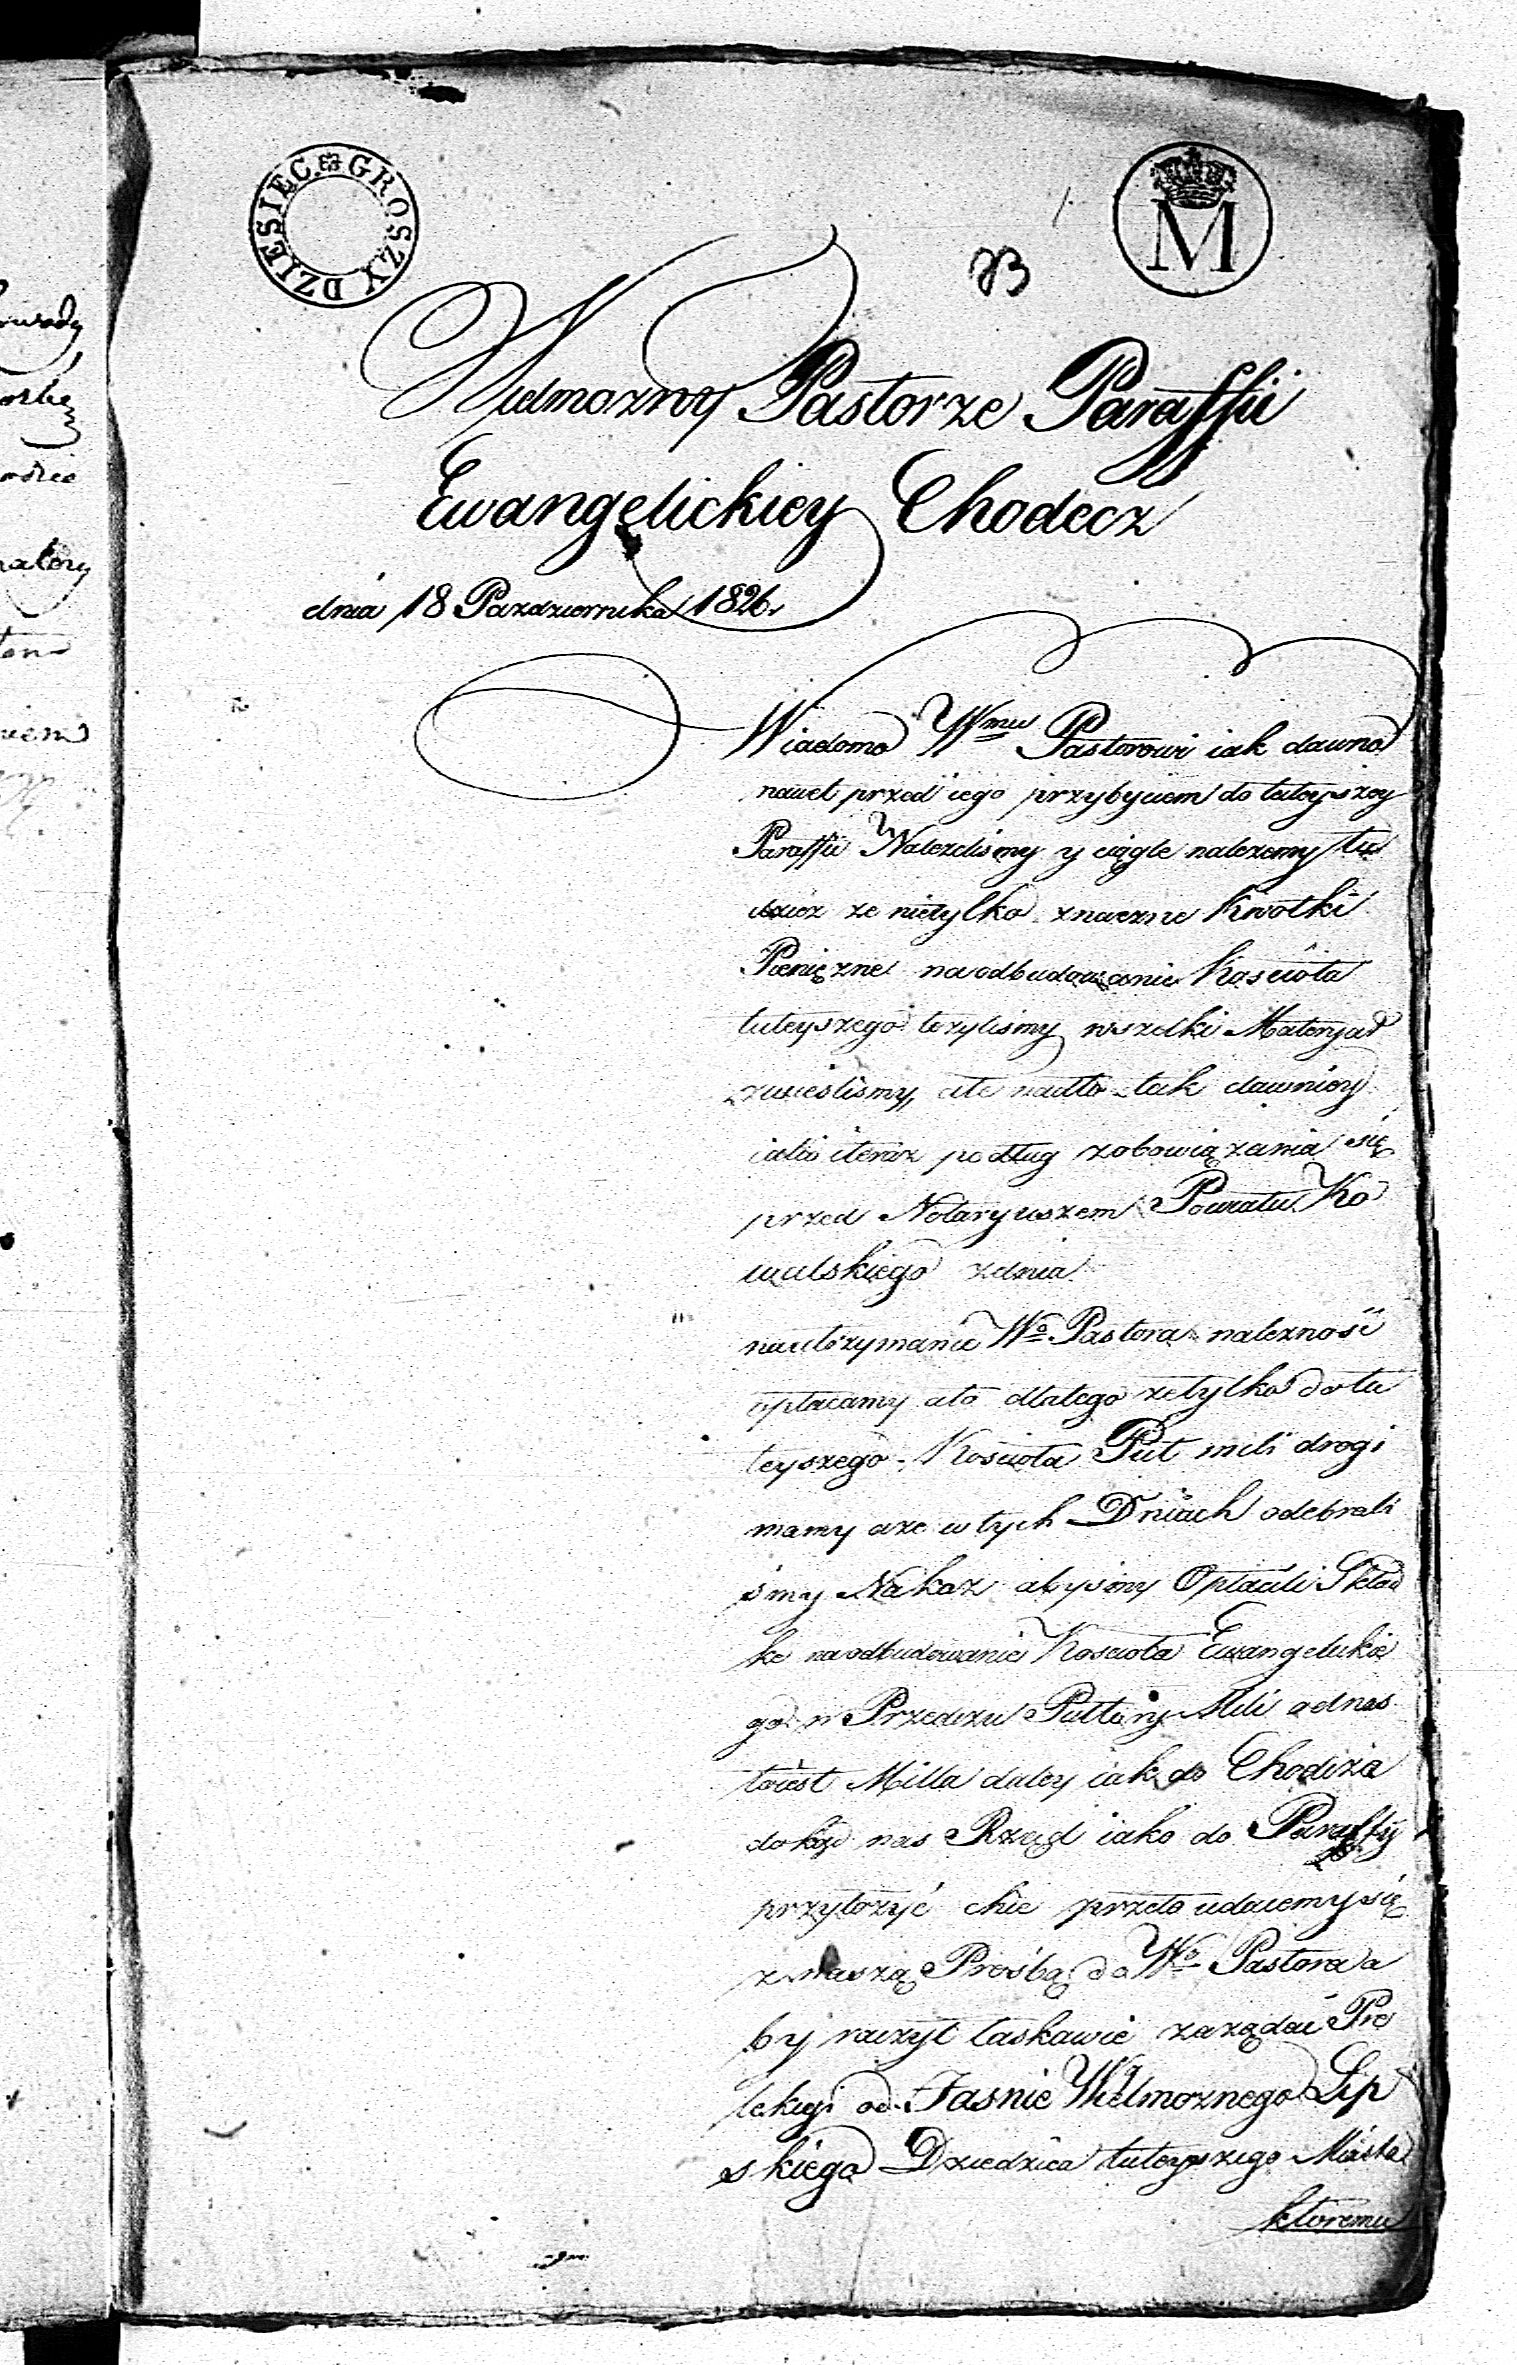 DZIESIEC GROSZY
M
73
Wielmozny Pastorze Paraffii
Ewangelickiey Chodecz
dnia 18 Pazdziernika 1826.
Wiadomo Wmu Pastorowi iak dawno
nawet przed iego przybyciem do tuteyszey
Paraffii Nalezelismy y ciągle nalezemy tu
dziez ze nietylko znaczne Kwotki
Pienięzne na odbudowanie Kosciola
tuteyszego lozylismy wszelki Materyał
zwieslismy, ale nadto tak dawniey
iako i teraz podług zobowiązania się
przed Notaryuszem Powiatu Ko
walskiego z dnia
na utrzymanie Wo Pastora nalezność
opłacamy a to dlatego ze tylko do tu
teyszego Kosciola Puł mili drogi
mamy a ze w tych Dniach odebrali
śmy Nakaz abysmy Opłacili Skład
ke na odbudowanie Kosciola Ewangelickie
go w Przedczu Pułtory Mili od nas
to iest Milla daley iak do Chodcza
dokąd nas Rząd iako do Paraffij
przyłozyć chce przeto udaiemy się
z naszą Prośbą do Wo Pastora a
by raczył łaskawie zaządać Pro
tekcyi od Jasnie Wielmoznego Lip
skiego Dziedzica tuteyszego Miasta
ktoremu